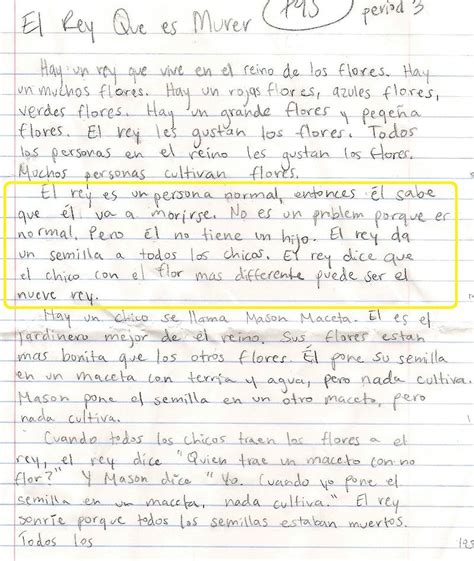 El Rey Que es Murer 195 period 3
Hay un rey que vive en el reino de los flores. Hay
un muchos flores. Hay un rojas flores, azules flores,
verdes flores. Hay un grande flores y pegeña
flores. El rey les gustan los flores. Todos
los personas en el reino les gustan los flores.
Muchos personas cultivan flores.
El rey es un persona normal, entonces él sabe
que él va a morirse. No es un problem porque es
normal. Pero él no tiene un hijo. El rey da
un semilla a todos los chicas. El rey dice que
el chico con el flor mas differente puede ser el
nueve rey.
Hay un chico se llama Mason Maceta. El es el
jardinero mejor de el reino. Sus flores estan
mas bonita que los otros flores. Él pone su semilla
en un maceta con terria y agua, pero nada cultiva.
Mason pone el semilla en un otro maceto, pero
nada cultiva.
Cuando todos los chicos traen los flores a el
rey, el rey dice "Quien trae un maceto con no
flor?" Y Mason dice "Yo. Cuando yo pone el
semilla en un maceta, nada cultiva." El rey
sonrie porque todos los semillas estaban muertos.
Todos los 195